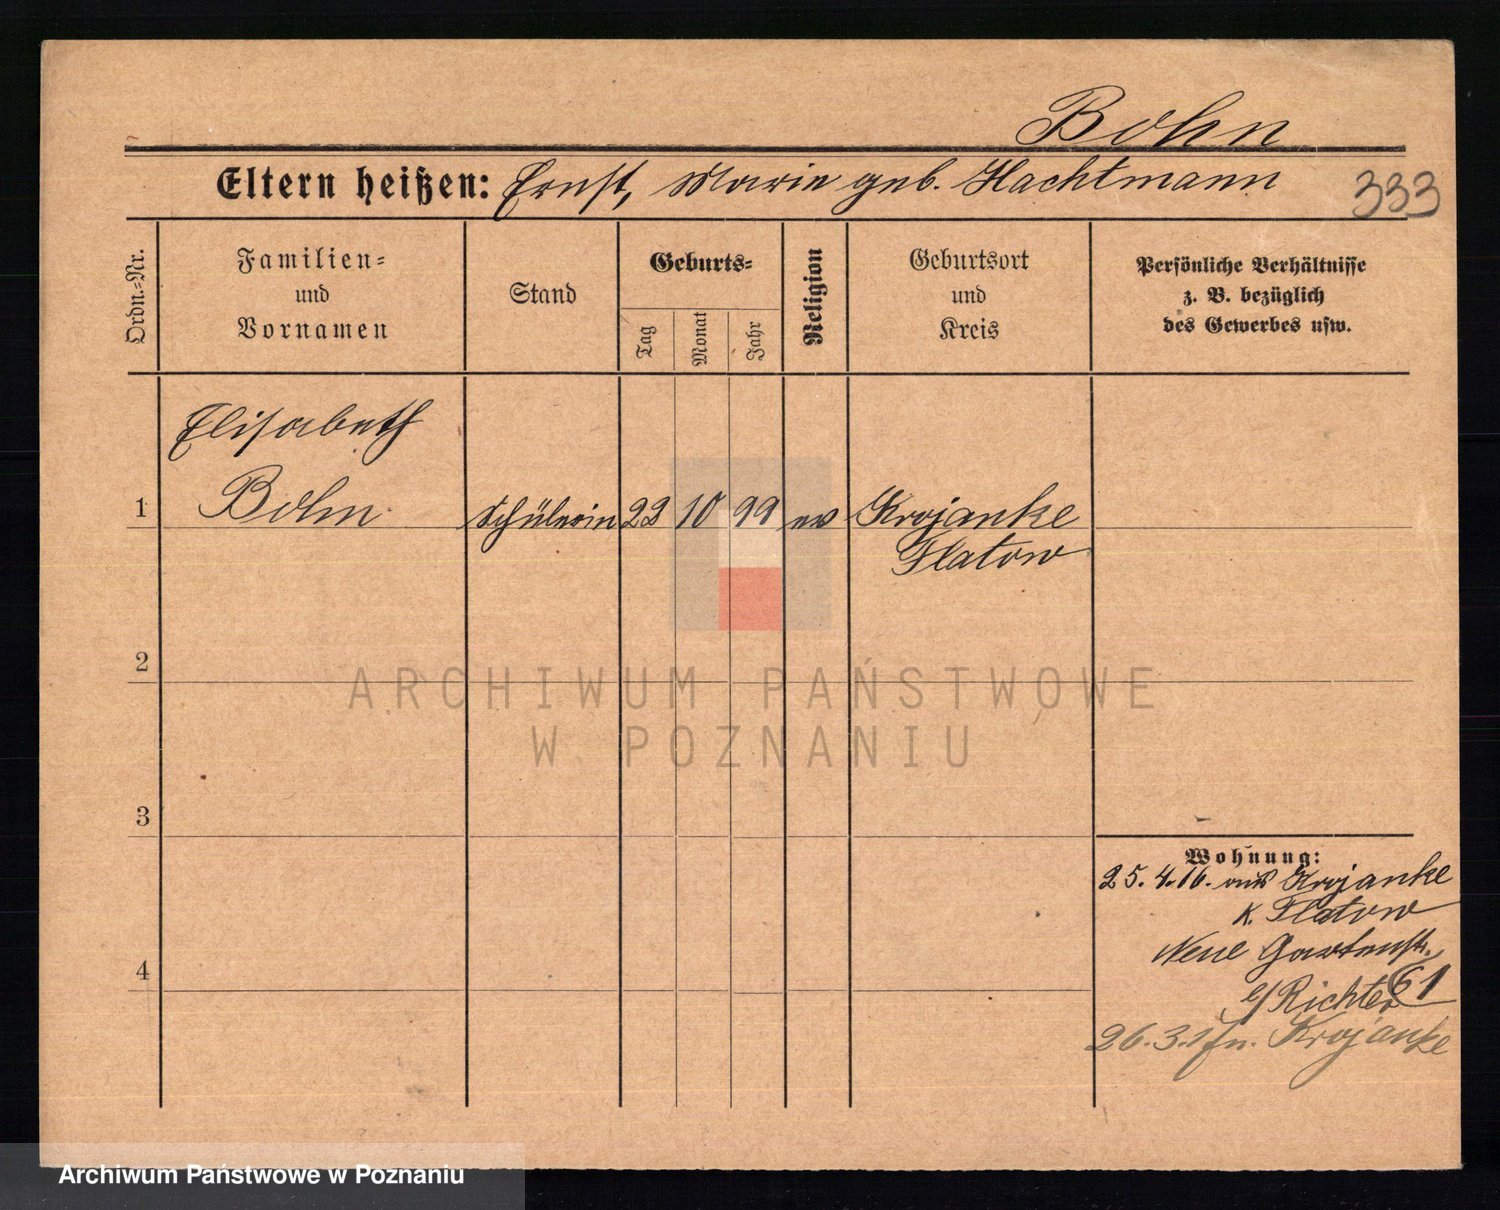 Bohn
Eltern heißen: Ernst, Marie geb. Hachtmann 333
Ordn.-Nr.
Familien-
und
Vornamen
Stand
Geburts-
Tag
Monat
Jahr
Religion
Geburtsort
und
Kreis
Persönliche Verhältnisse
z. B. bezüglich
des Gewerbes usw.
Elisabeth
1 Bohn Schülerin 22 10 99 ev Krojanke
Flatow
2
ARCHIWUM PAŃSTWOWE
W POZNANIU
3
Wohnung:
25.4.16. aus Krojanke
K. Flatow
Neue Gartenstr.
61
4
b/ Richter
26.3. n. Krojanke
Archiwum Państwowe w Poznaniu